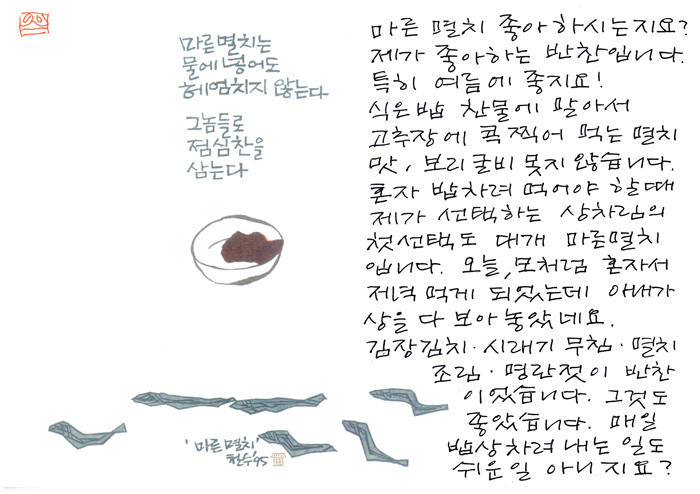 마른멸치는
물에 넣어도
헤엄치지 않는다
그놈들로
점심찬을
삼는다
'마른멸치'
철수 '95
마른 멸치 좋아하시는지요?
제가 좋아하는 반찬입니다.
특히 여름에 좋지요!
식은밥 찬물에 말아서
고추장에 콕 찍어 먹는 멸치
맛, 보리굴비 못지 않습니다.
혼자 밥차려 먹어야 할때
제가 선택하는 상차림의
첫선택도 대개 마른멸치
입니다. 오늘, 모처럼 혼자서
저녁 먹게 되었는데 아내가
상을 다 보아 놓았네요.
김장김치·시래기 무침·멸치
조림·명란젓이 반찬
이었습니다. 그것도
좋았습니다. 매일
밥상차려 내는 일도
쉬운일 아니지요?